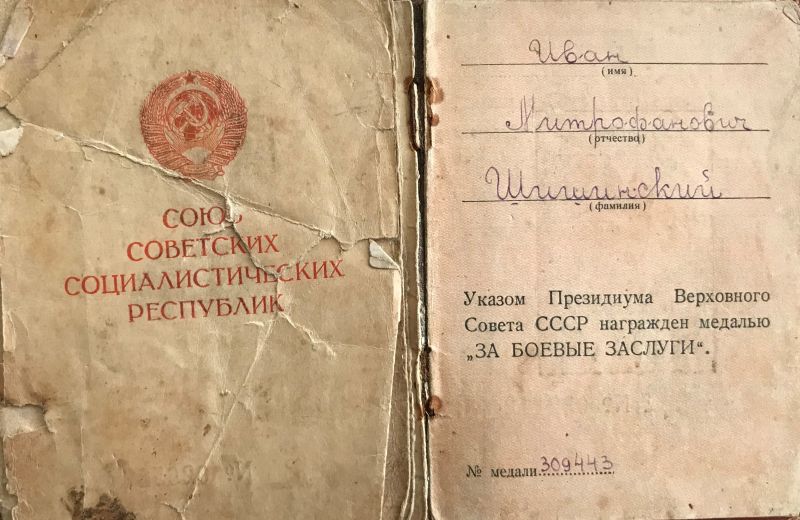 СОЮЗ
СОВЕТСКИХ
СОЦИАЛИСТИЧЕСКИХ
РЕСПУБЛИК
Иван
(имя)
Митрофанович
(отчество)
Шишинский
(фамилия)
Указом Президиума Верховного
Совета СССР награжден медалью
„ЗА БОЕВЫЕ ЗАСЛУГИ“.
№ медали 309443